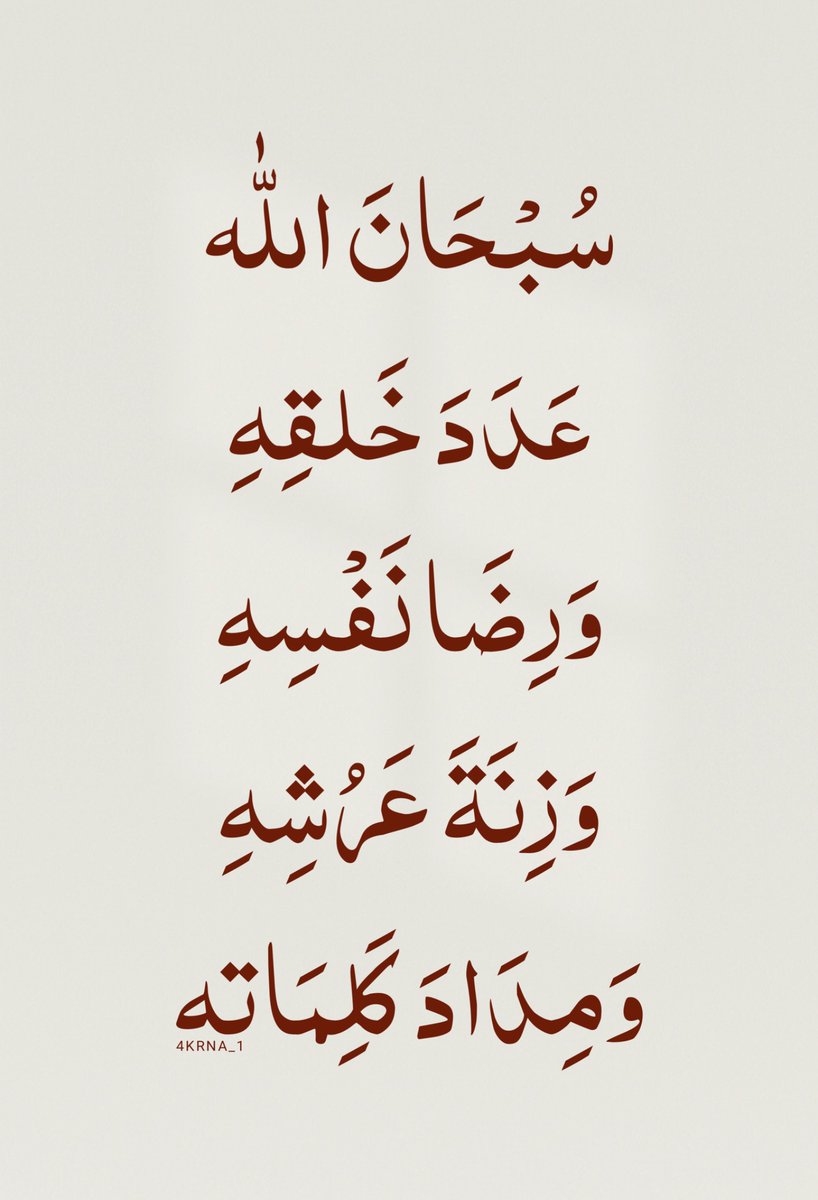 سُبْحَانَ اللّٰه
عَدَدَ خَلقِهِ
وَرِضَا نَفْسِهِ
وَزِنَةَ عَرُشِهِ
وَمِدَادَ كَلِمَاته
4KRNA_1